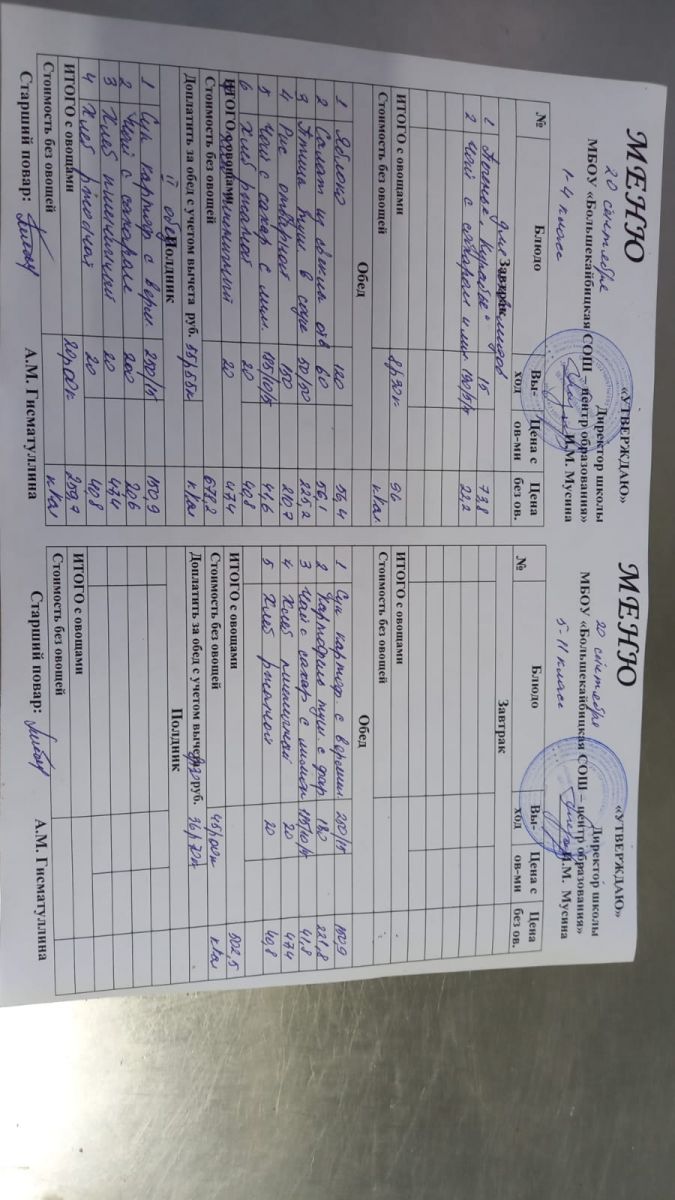 МЕНЮ
«УТВЕРЖДАЮ»
20 сентября
Директор школы
МБОУ «Большекайбицкая СОШ – центр образования»
И.М. Мусина
1-4 класс
№ Блюдо Вы-ход Цена с ов-ми Цена без ов.
Завтрак
1 Печенье „Курабье" 15 73,8
2 Чай с сахаром и мол 22,2
ИТОГО с овощами 8р90к 96
Стоимость без овощей ккал
Обед
1 Яблоко 120 56,4
2 Салат из свекла отв 60 56,1
3 Птица туш в соусе 50/50 225,2
4 Рис отварной 150 210,7
5 Чай с сахар с лим. 195/10/5 41,6
6 Хлеб ржаной 20 40,8
ИТОГО с овощами 20 47,4
Стоимость без овощей 678,2
Доплатить за обед с учетом вычета руб. ккал
Полдник
II обед
1 Суп картоф с верм 250/15 150,9
2 Чай с сахаром 200 20,6
3 Хлеб пшеничный 20 47,4
4 Хлеб ржаной 20 40,8
ИТОГО с овощами 20р00к 259,7
Стоимость без овощей ккал
Старший повар: А.М. Гисматуллина
МЕНЮ
«УТВЕРЖДАЮ»
20 сентября
Директор школы
МБОУ «Большекайбицкая СОШ – центр образования»
И.М. Мусина
5-11 класс
№ Блюдо Вы-ход Цена с ов-ми Цена без ов.
Завтрак
ИТОГО с овощами
Стоимость без овощей
Обед
1 Суп картоф. с вермиш. 250/15 150,9
2 Картофель туш. с фар 180 221,8
3 Чай с сахар с лимон 195/10/5 41,8
4 Хлеб пшеничный 20 47,4
5 Хлеб ржаной 20 40,8
ИТОГО с овощами 502,5
Стоимость без овощей 45р00к ккал
Доплатить за обед с учетом вычета руб. 36р70к
Полдник
ИТОГО с овощами
Стоимость без овощей
Старший повар: А.М. Гисматуллина